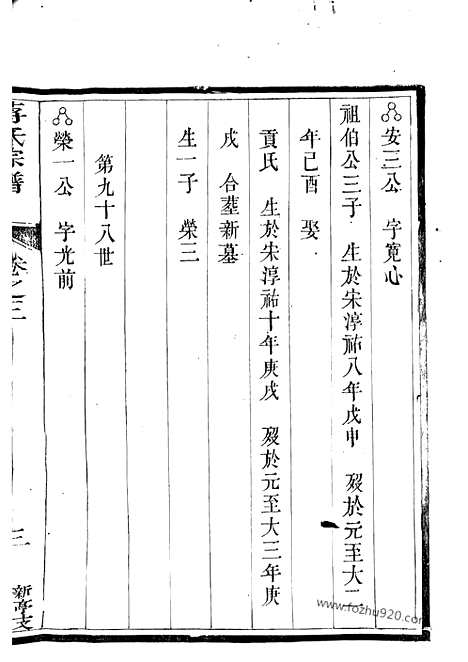 安三公 字寛心
祖伯公三子 生於宋淳祐八年戊申 殁於元至大二
年己酉 娶
貢氏 生於宋淳祐十年庚戌 殁於元至大三年庚
戌 合塟新墓
生一子 榮三
第九十八世
榮一公 字光前
氏宗譜 卷之三 三 新亭支
www.fozhu920.com